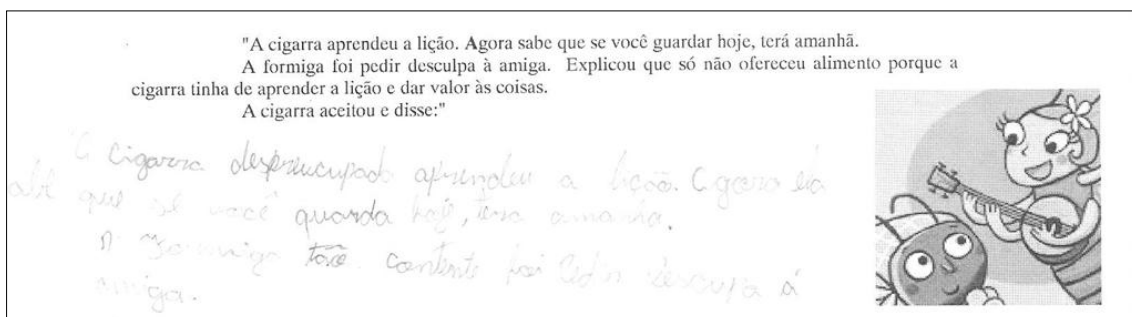 "A cigarra aprendeu a lição. Agora sabe que se você guardar hoje, terá amanhã.
A formiga foi pedir desculpa à amiga. Explicou que só não ofereceu alimento porque a
cigarra tinha de aprender a lição e dar valor às coisas.
A cigarra aceitou e disse:"
cigarra aprendeu a
que se você guarda hoje, tera amanha.
contente foi á
amiga.